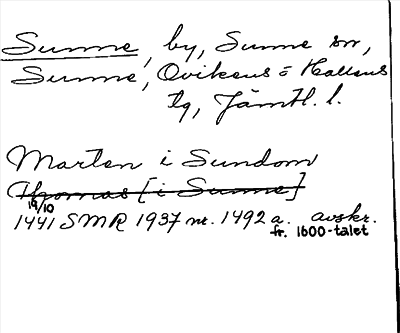 Sunne, by, Sunne sn,
Sunne, Ovikens o Hallens
tg, Jämtl. l.
Marten i Sundom
Thomas [i Sunne]
19/10
1441 SMR 1937 nr. 1492 a. avskr.
fr. 1600-talet